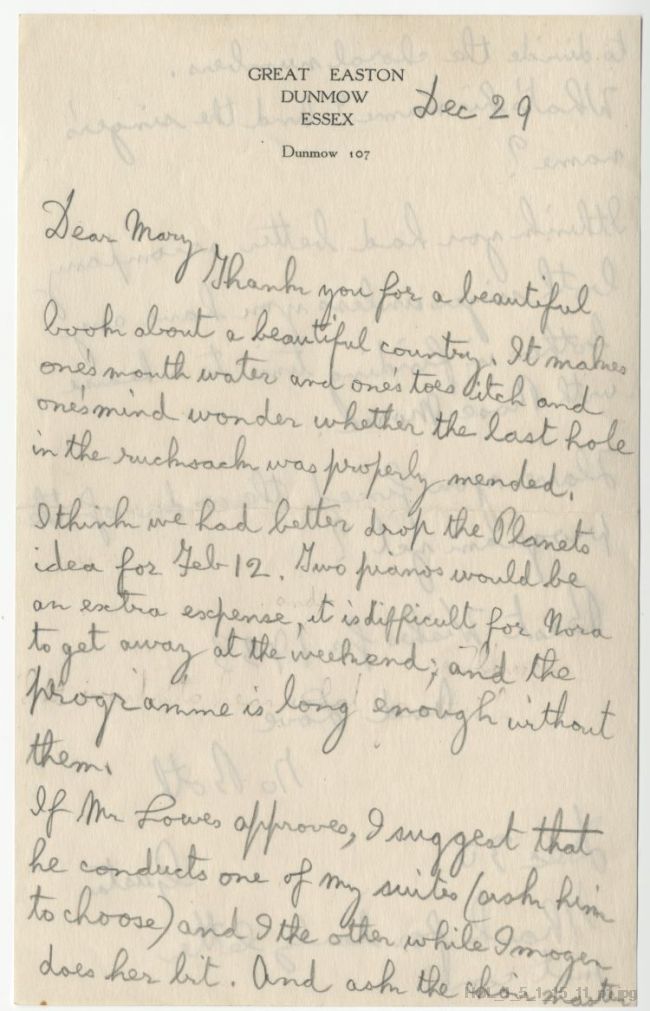 GREAT EASTON
DUNMOW
ESSEX
Dunmow 107
Dec 29
Dear Mary
Thank you for a beautiful
book about a beautiful country. It makes
one's mouth water and one's toes itch and
one's mind wonder whether the last hole
in the rucksack was properly mended.
I think we had better drop the Planets
idea for Feb 12. Two pianos would be
an extra expense, it is difficult for Nora
to get away at the weekend; and the
programme is long enough without
them.
If Mr Lowes approves, I suggest that
he conducts one of my suites (ask him
to choose) and I the other while Imogen
does her bit. And ask the choir master